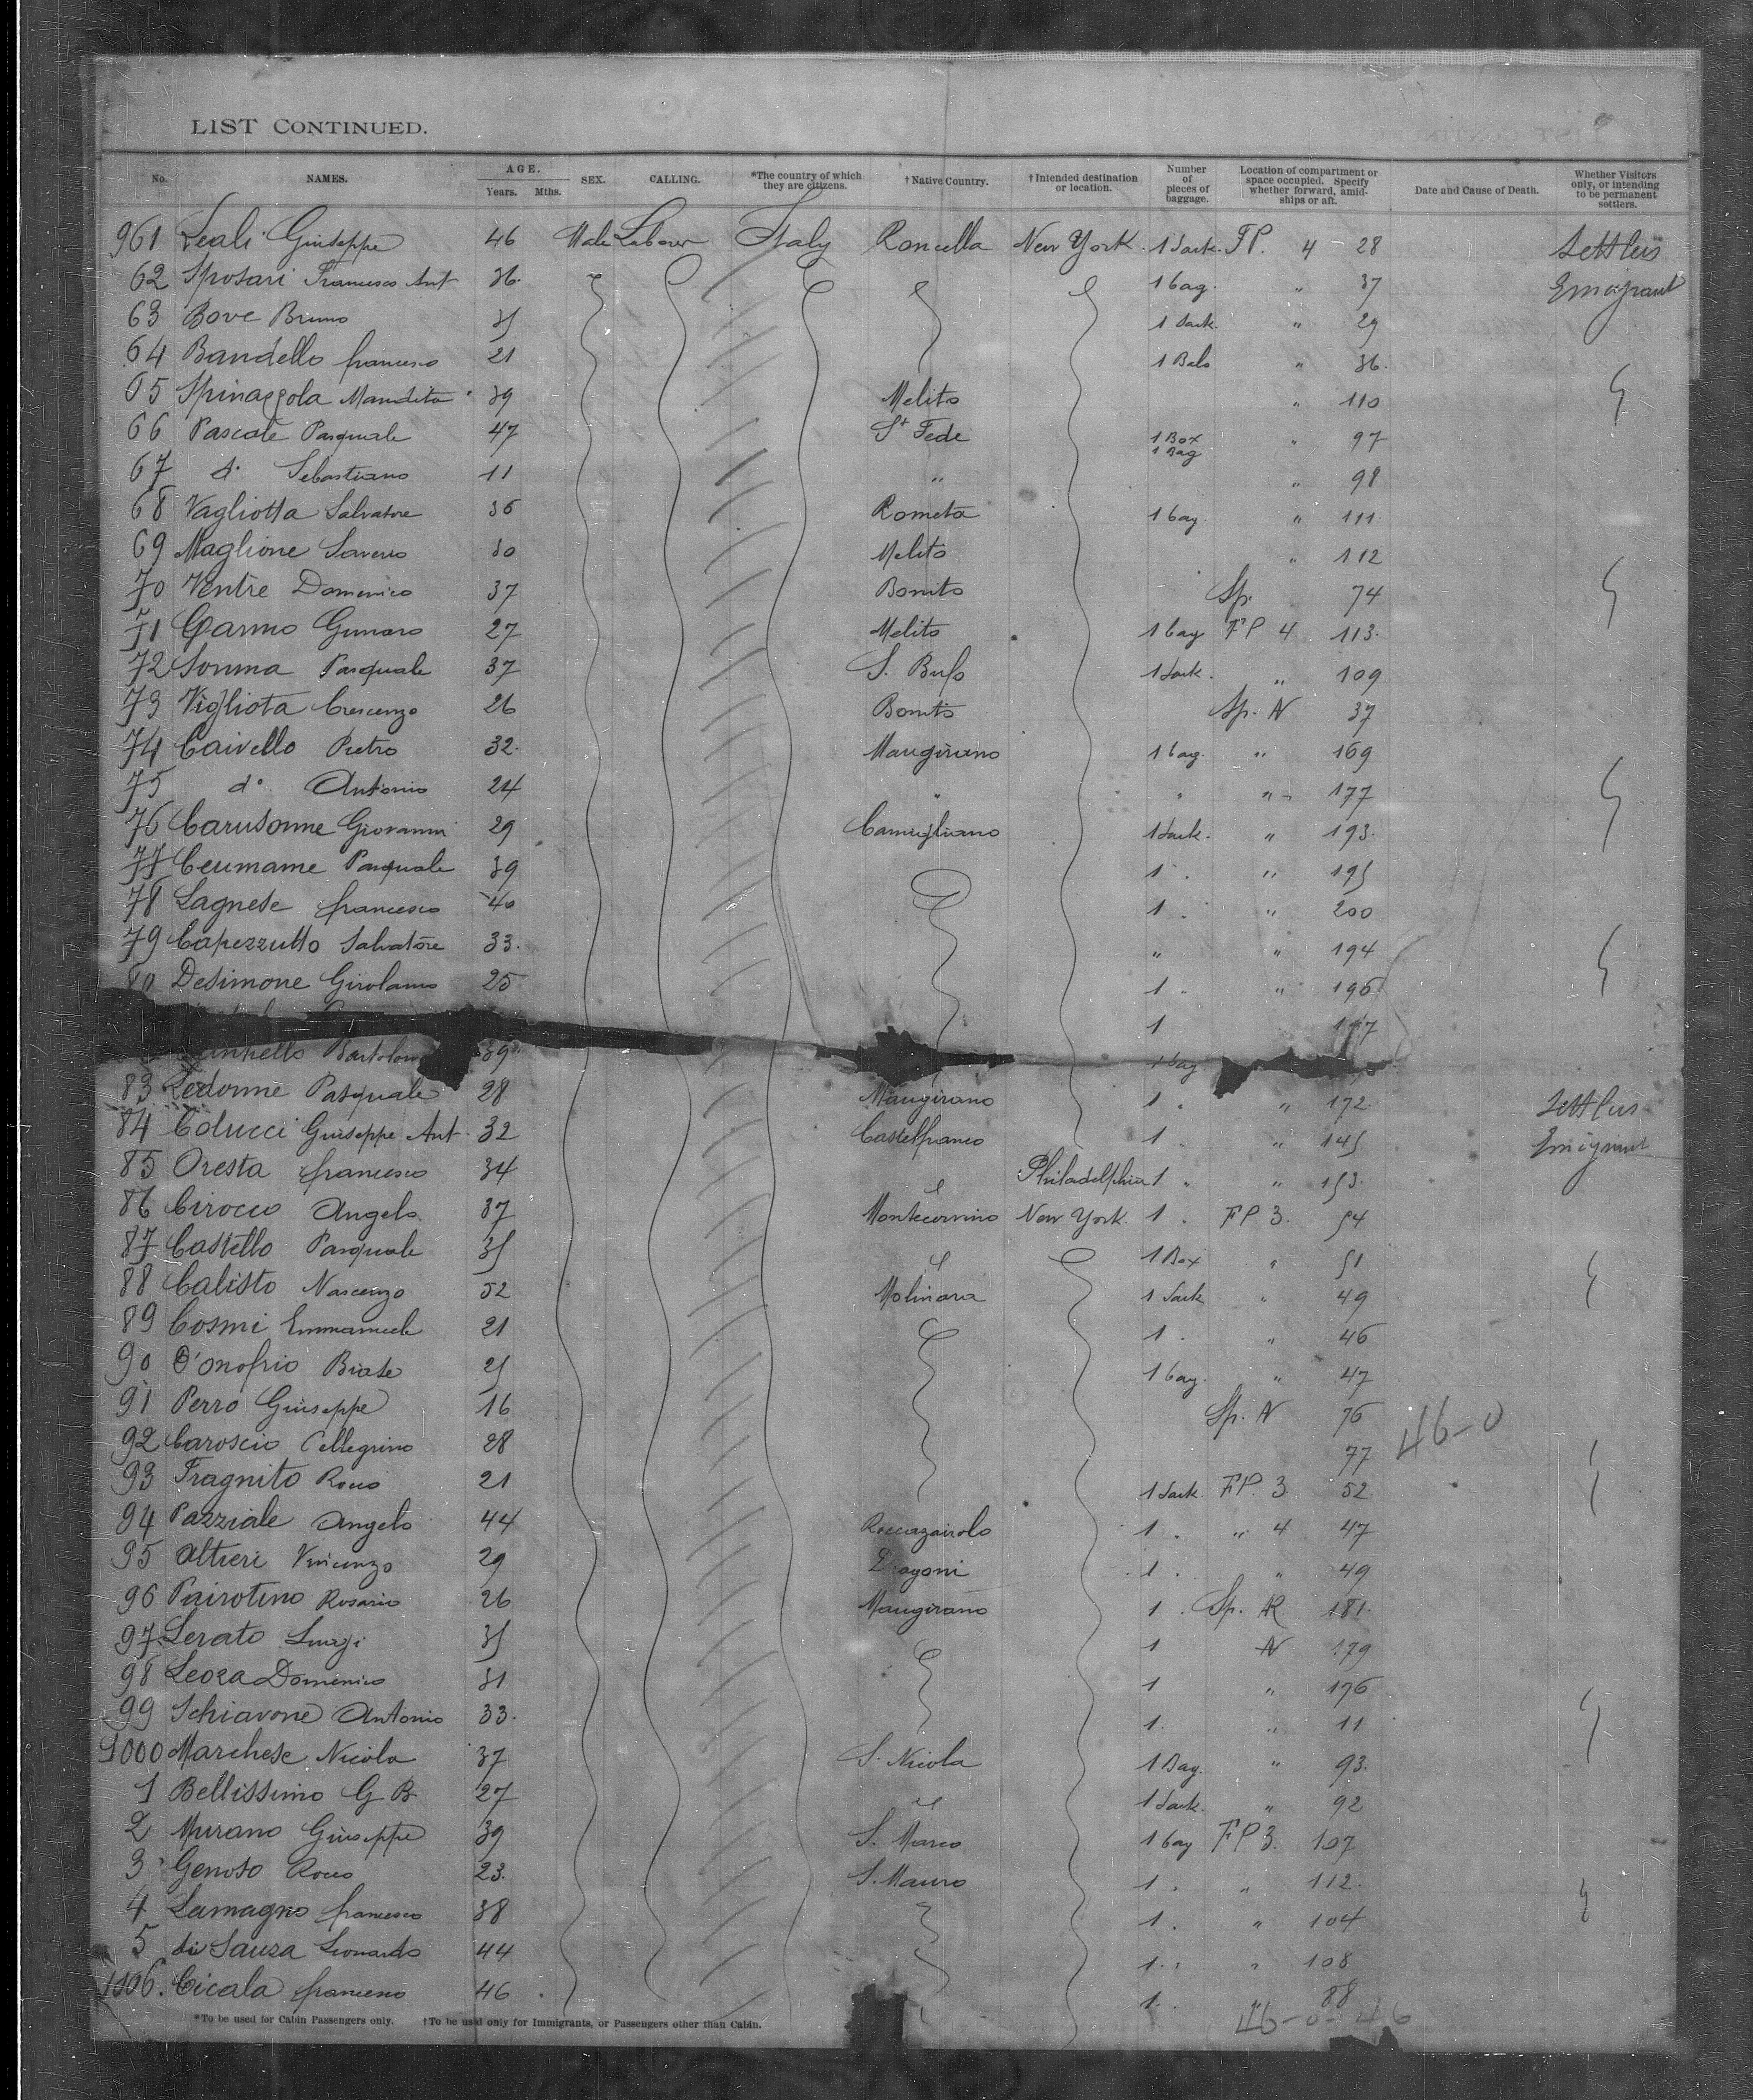 LIST CONTINUED.
No. NAMES. AGE. Years. Mths. SEX. CALLING. *The country of which they are citizens. †Native Country. †Intended destination or location. Number of pieces of baggage. Location of compartment or space occupied. Specify whether forward, amidships or aft. Date and Cause of Death. Whether Visitors only, or intending to be permanent settlers.
961 Leali Giuseppe 46 Male Labour Italy Roncella New York 1 Sack. FP. 4 28 Settlers
62 Sposari Francesco Ant 36. 1 bag. " 37 Emigrant
63 Bove Bruno 35 1 Sack. " 29
64 Bandello francesco 21 1 " 36.
65 Spinazzola 39 Melito " 110
66 Pascale Pasquale 47 St Fede 1 Box 1 Bag " 97
67 d° Sebastiano 11 " " 98
68 Vagliotta Salvatore 36 Rometa 1 bag. " 111.
69 Maglione Saverio 30 Melito " 112
70 Ventre Domenico 37 Bonito Sp. 74
71 Garmo Gennaro 27 Melito 1 bag FP 4 113.
72 Somma Pasquale 37 S. 1 Sack. " 109
73 Vigliota Crescenzo 26 Bonito Sp. N 37
74 Caivello Pietro 32. Maugirano 1 bag. " 169
75 d° Antonio 24 " " " 177
76 Carusonne Giovanni 29 Camigliano 1 Sack. " 193.
77 Ceumame Pasquale 39 1 . " 195
78 Lagnese francesco 40 1 . " 200
79 Capezzutto Salvatore 33. " " 194
80 Desimone Girolamo 25 1 " " 196
1 197
39 1 bag
83 Ledonne Pasquale 28 Maugirano 1 . " 172. Settlers
84 Colucci Giuseppe Ant. 32 Castelfranco 1 . " 145 Emigrant
85 Oresta francesco 34 Philadelphia 1 " " 153.
86 Cirocco Angelo 37 Montecorvino New York. 1 . FP 3. 54
87 Castello Pasquale 35 1 Box " 51
88 Calisto Nascenzo 52 Molinara 1 Sack " 49
89 Cosmi Emmanuele 21 1 . " 46
90 D'onofrio Biase 25 1 bag. " 47
91 Perro Giuseppe 16 Sp. N 76 46-0
92 Caroscio Pellegrino 28 77
93 Fragnito Rocco 21 1 Sack. FP. 3 52
94 Pazziale Angelo 44 1 . " 4 47
95 Altieri Vincenzo 29 Dragoni 1 . " 49
96 Pairotino Rosario 26 Maugirano 1 . Sp. 181.
97 Serato Luigi 35 1 N 179
98 Leoza Domenico 31 1 " 176
99 Schiavone Antonio 33. 1. " 11
1000 Marchese Nicola 37 S. Nicola 1 Bag. " 93.
1 Bellissimo G B. 27 1 Sack. " 92
2 Murano Giuseppe 39 S. Marco 1 bag FP 3. 107
3 Genoso Rocco 23. S. Mauro 1 . " 112.
4 Lamagno francesco 38 1 . " 104
5 di Sauza Leonardo 44 1 . " 108
1006. Cicala francesco 46 1 . " 88
46-0-46
*To be used for Cabin Passengers only. †To be used only for Immigrants, or Passengers other than Cabin.